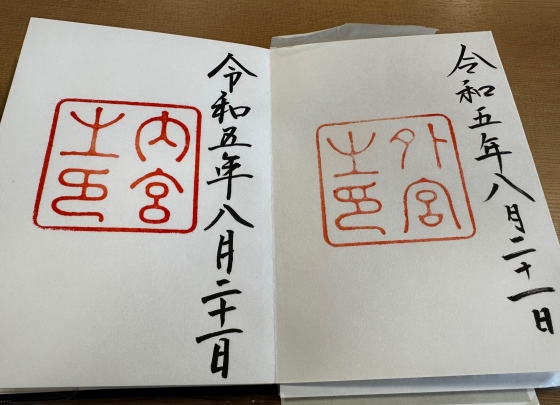 令和五年八月二十一日
外宮
之印
令和五年八月二十一日
内宮
之印